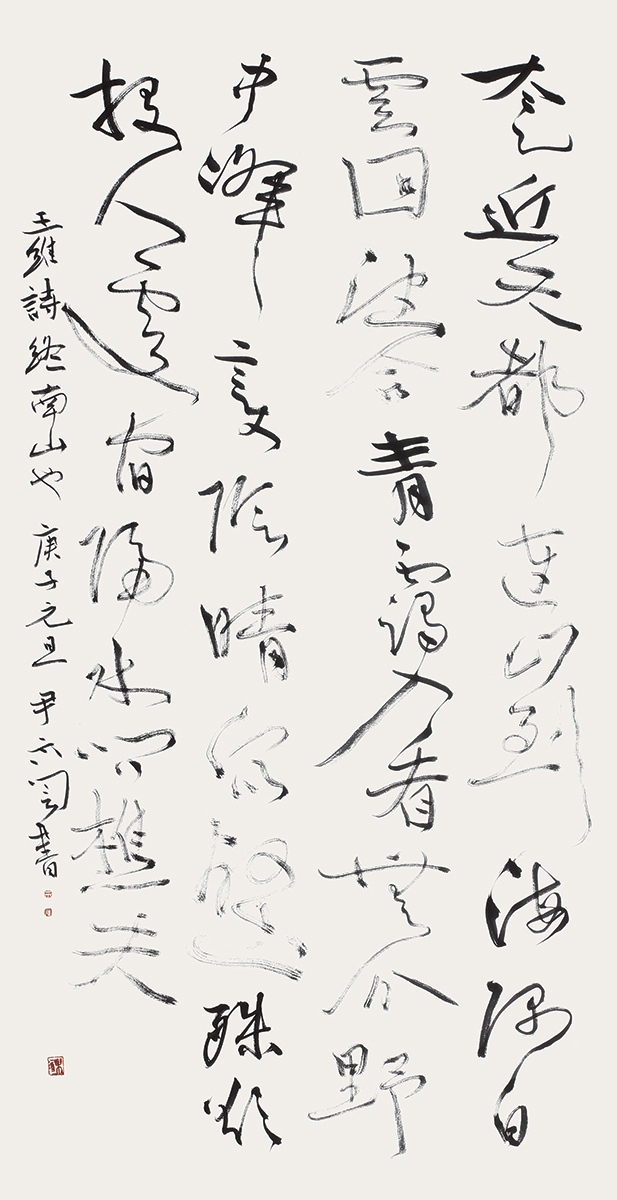 太乙近天都連山到海隅白
雲回望合青靄入看無分野
中峰變陰晴眾壑殊欲
投人處宿隔水問樵夫
王維詩終南山也 庚子元旦 尹書